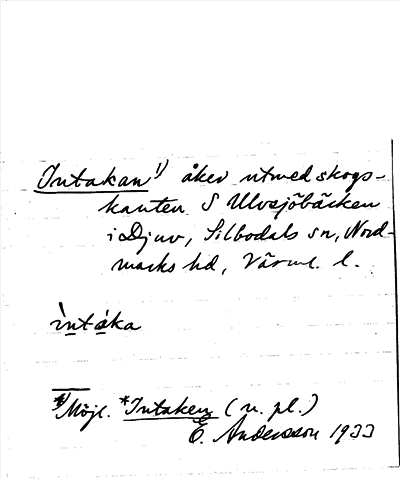 Intakan¹⁾ åker utmed skogs-
kanten S Ulvsjöbäcken
i Djuv, Silbodals sn, Nord-
marks hd, Värml. l.
ìntáka
¹⁾ Möjl. *Intaken (n. pl.)
E. Andersson 1933